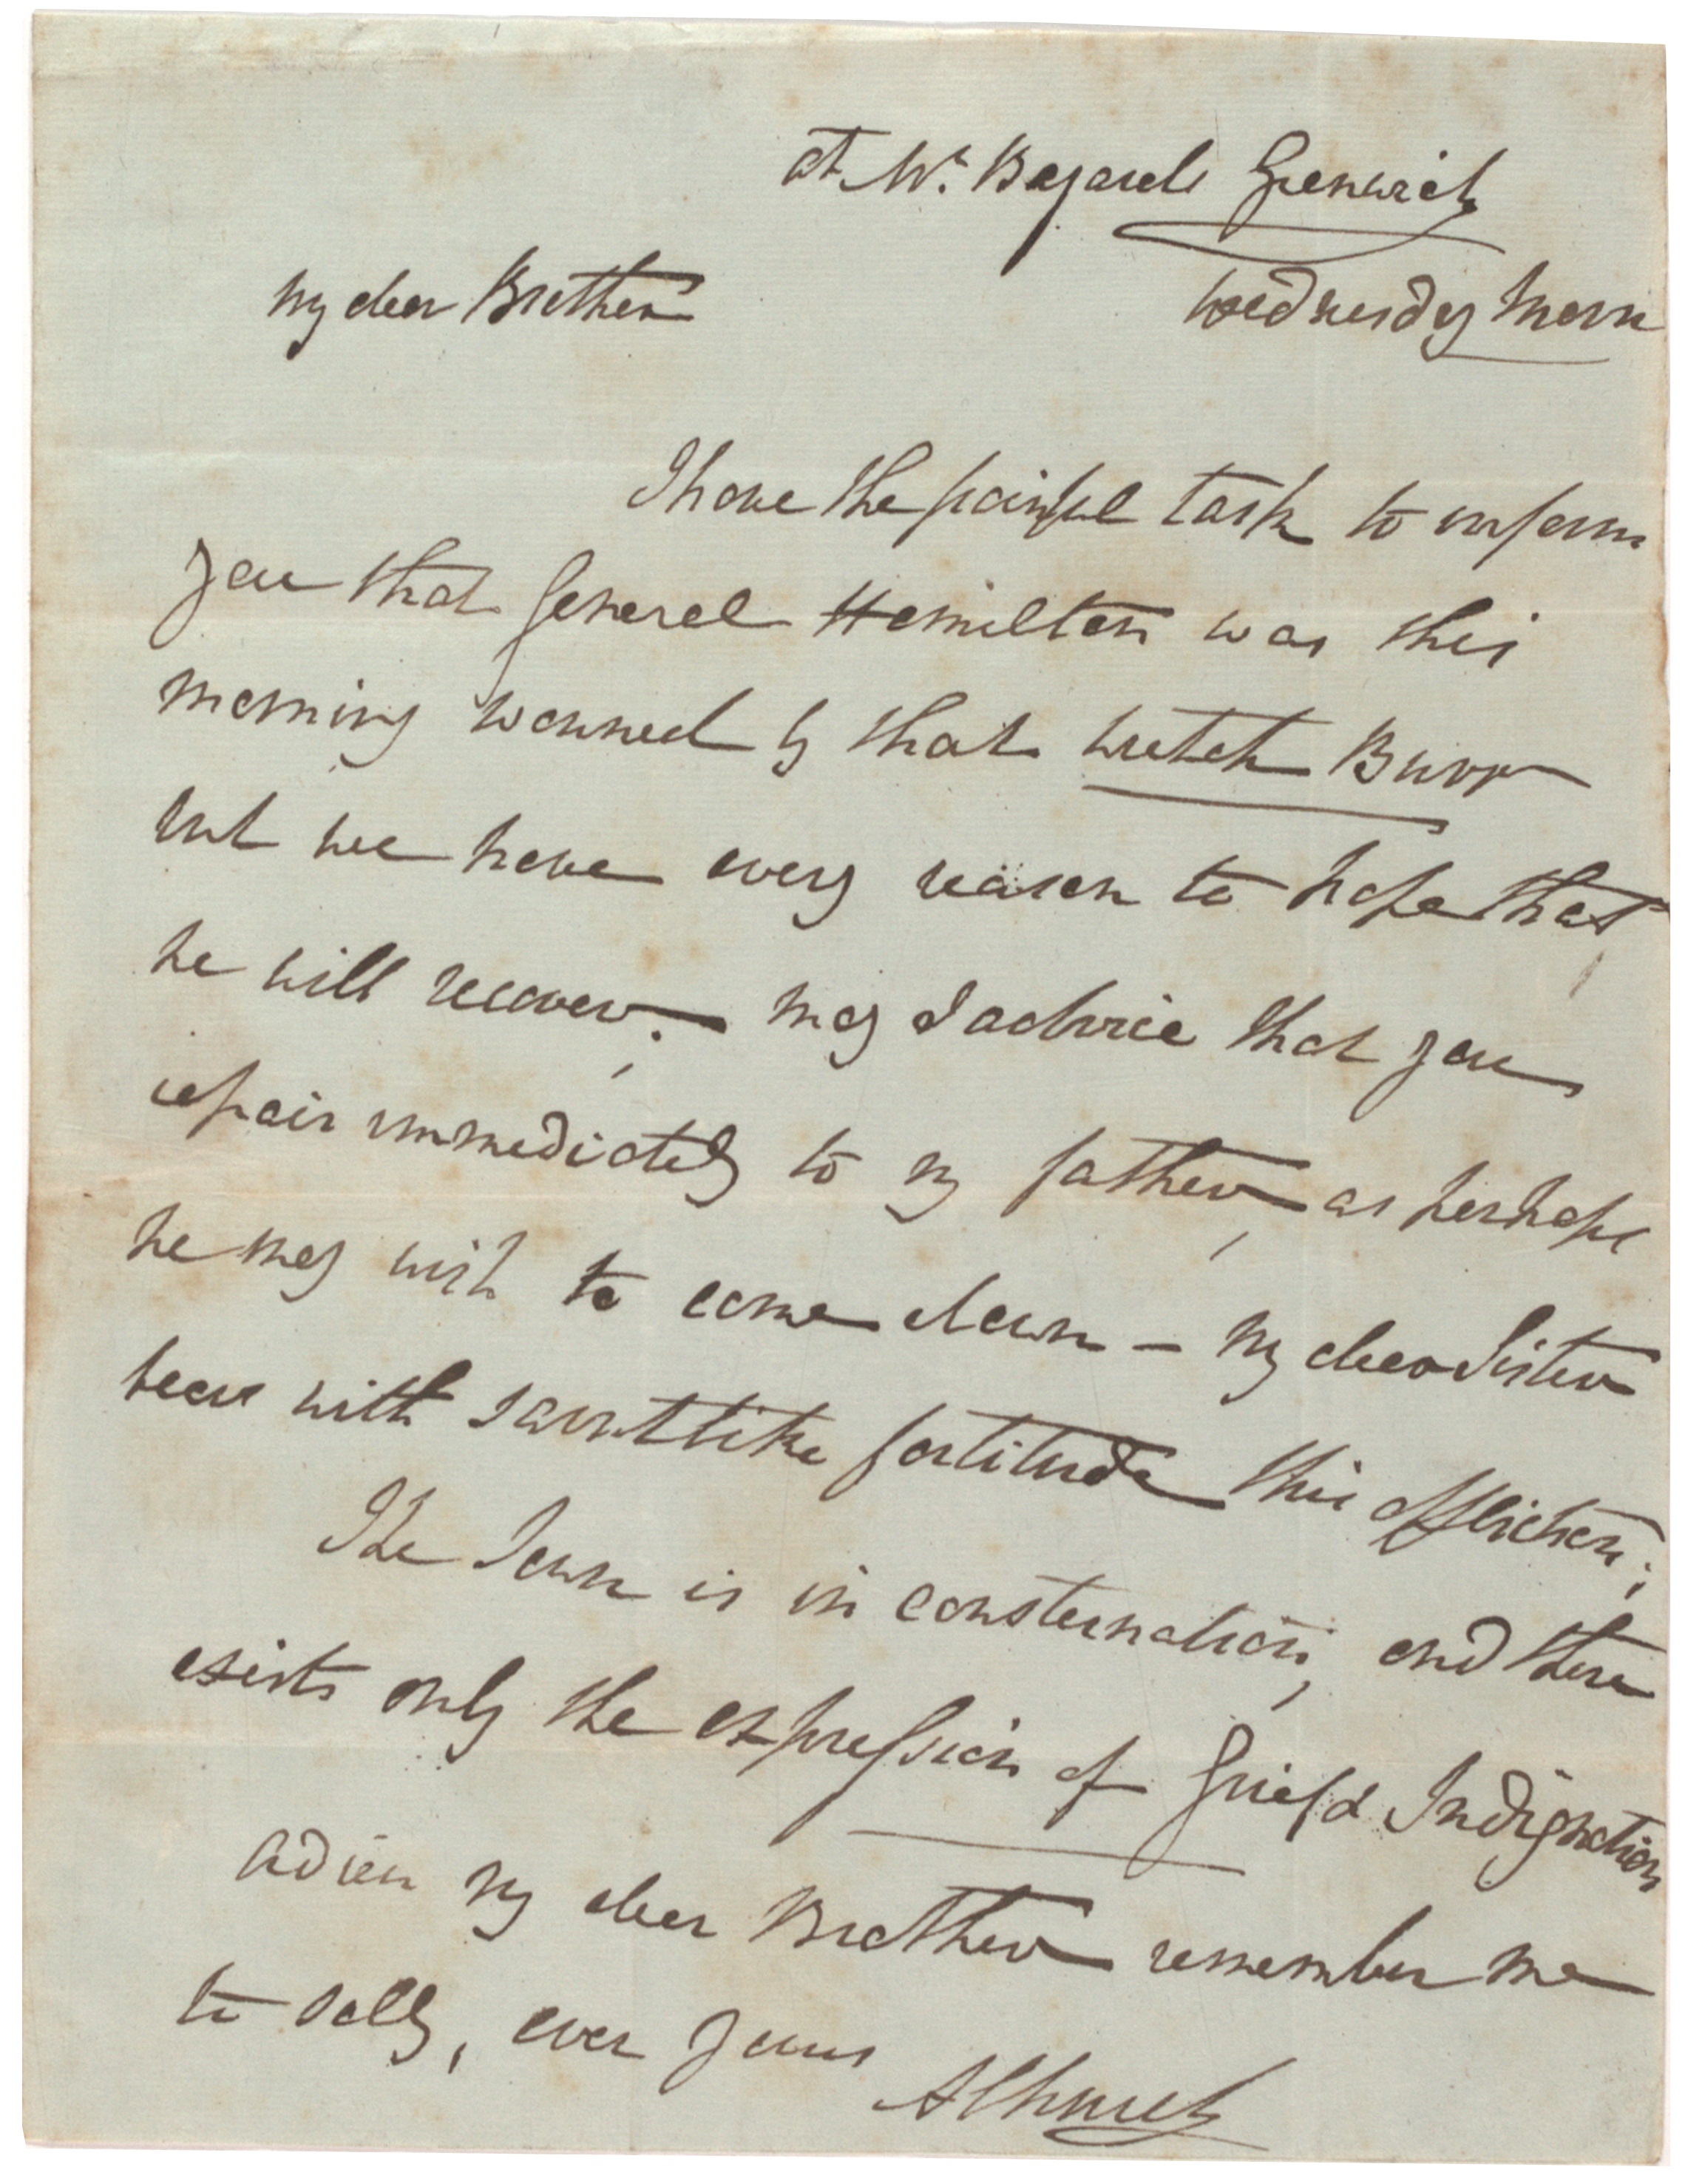 at Wm. Bayards Greenwich
Wednesday Morn
My dear Brother
I have the painful task to inform
you that General Hamilton was this
morning wounded by that wretch Burr
but we have every reason to hope that
he will recover. May I advice that you
repair immediately to my father, as perhaps
he may wish to come down – My dear Sister
bears with saintlike fortitude this affliction;
The Town is in consternation, and there
exists only the expression of Grief & Indignation
Adieu my dear Brother remember me
to Sally, ever yours
A Church